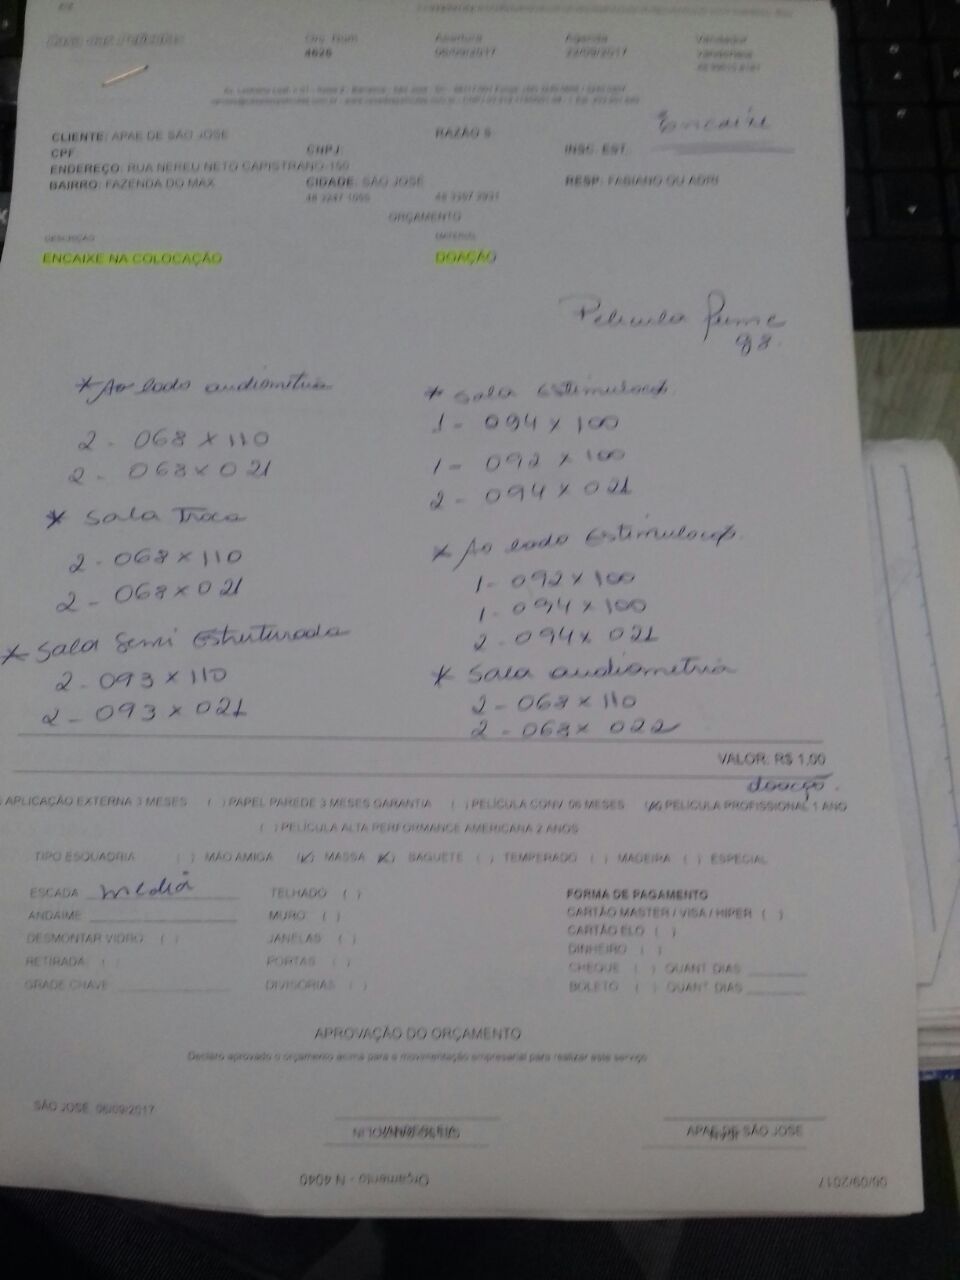 Orç. Num Abertura Agenda Vendedor
4626 06/09/2017
Encaixe
CLIENTE: APAE DE SÃO JOSE RAZÃO S
CPF: CNPJ: INSC. EST.
ENDEREÇO: RUA NEREU NETO CAPISTRANO 150
BAIRRO: FAZENDA DO MAX CIDADE: SÃO JOSE RESP: FABIANO OU ADRI
ORÇAMENTO
DESCRIÇÃO MATERIAL
ENCAIXE NA COLOCAÇÃO DOAÇÃO
Pelicula fume
g8.
* Ao lado audiometria
2 - 068 x 110
2 - 068 x 021
* Sala Troca
2 - 068 x 110
2 - 068 x 021
* Sala Semi Estruturada
2 - 093 x 110
2 - 093 x 021
* Sala Estimulaçã.
1 - 094 x 100
1 - 092 x 100
2 - 094 x 021
* Ao lado Estimulaçã.
1 - 092 x 100
1 - 094 x 100
2 - 094 x 021
* Sala audiometria
2 - 068 x 110
2 - 068 x 022
VALOR: R$ 1,00
doação.
APLICAÇÃO EXTERNA 3 MESES ( ) PAPEL PAREDE 3 MESES GARANTIA ( ) PELÍCULA CONV 06 MESES (x) PELICULA PROFISSIONAL 1 ANO
( ) PELÍCULA ALTA PERFORMANCE AMERICANA 2 ANOS
TIPO ESQUADRIA ( ) MÃO AMIGA (x) MASSA (x) BAGUETE ( ) TEMPERADO ( ) MADEIRA ( ) ESPECIAL
ESCADA media TELHADO ( ) FORMA DE PAGAMENTO
ANDAIME MURO ( ) CARTÃO MASTER / VISA / HIPER ( )
DESMONTAR VIDRO ( ) JANELAS ( ) CARTÃO ELO ( )
RETIRADA ( ) PORTAS ( ) DINHEIRO ( )
GRADE CHAVE DIVISORIAS ( ) CHEQUE ( ) QUANT DIAS
BOLETO ( ) QUANT DIAS
APROVAÇÃO DO ORÇAMENTO
Declaro aprovado o orçamento acima para a movimentação empresarial para realizar este serviço
SÃO JOSE, 06/09/2017
APAE DE SÃO JOSE
Orçamento - N 4040
06/09/2017